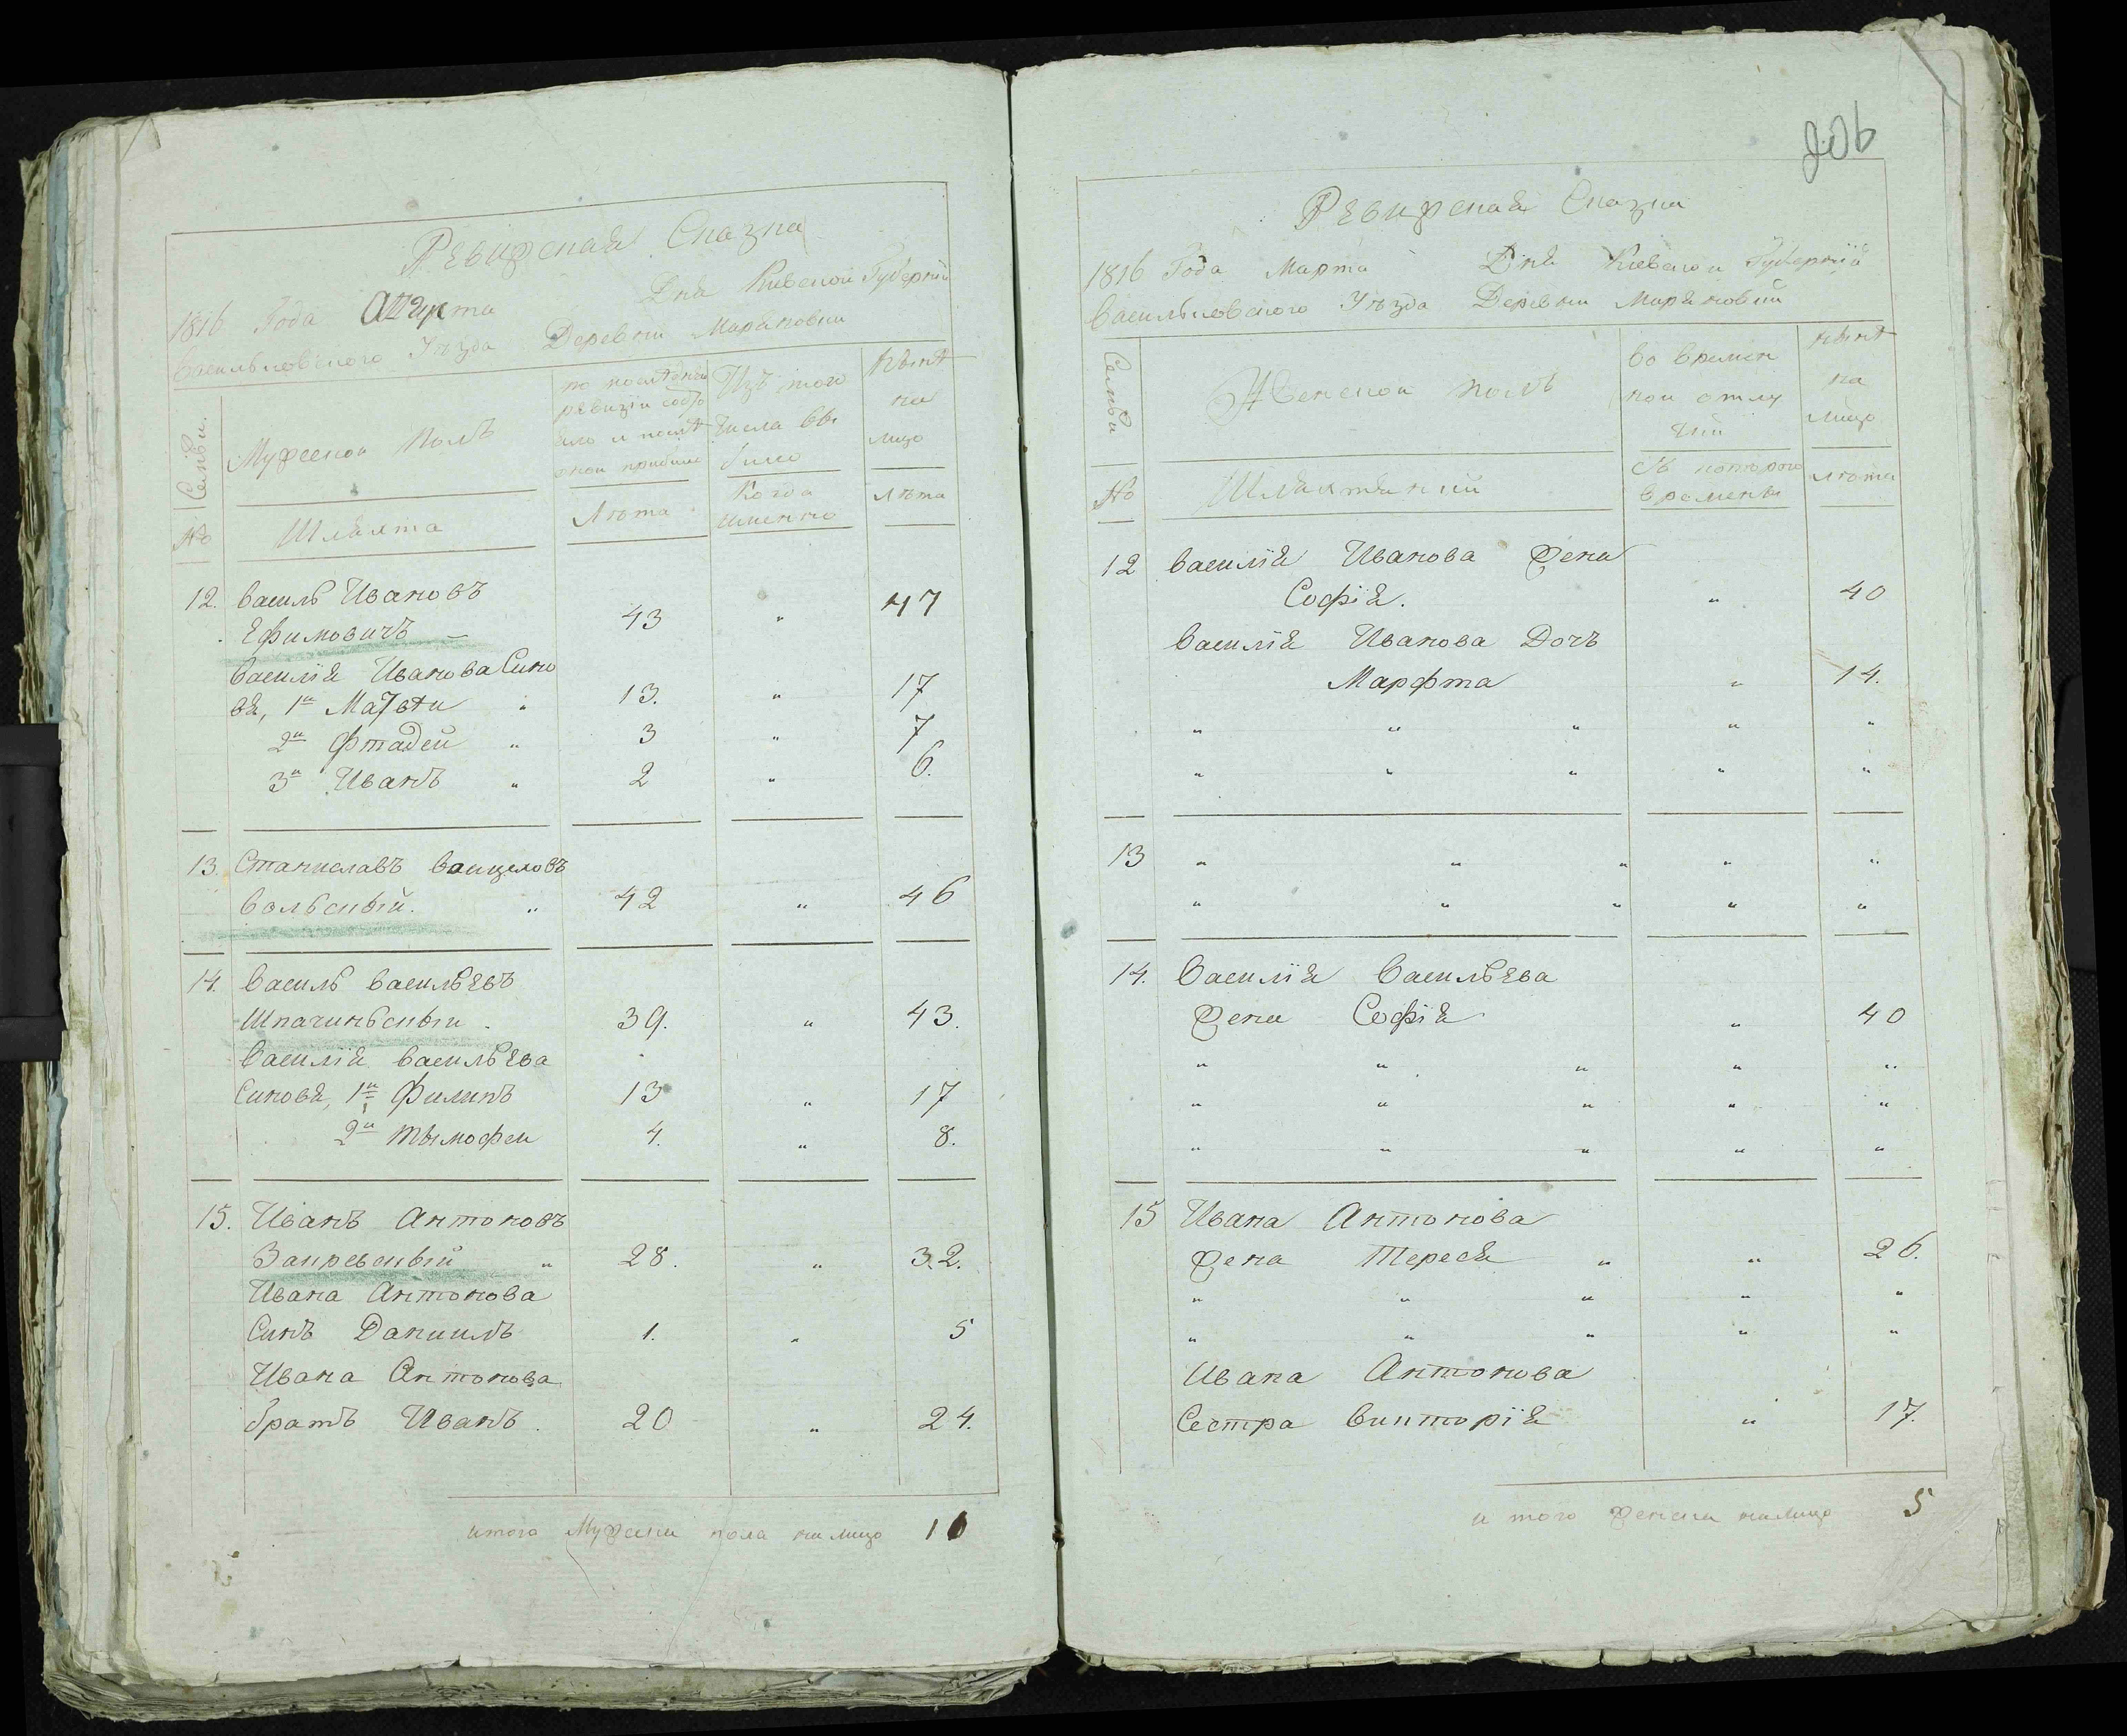 Ревизская Сказка
1816 Года Августа Дня Киевской Губернiи
Васильковского Уезда Деревни Марiяновки
Семьи.
Мужеской полъ
по последней
ревизiи состо
яло и после
оной прибыло
Изъ того
числа вы
было
ныне
на
лицо
№
Шляхта
Лета
Когда
именно
лета
12. Василь Ивановъ
Ефимовичъ 43 " 47
Василiя Иванова Сино
вя, 1й Матвей " 13. " 17
2й Фтадей " 3 " 7
3й Иванъ " 2 " 6.
13. Станиславъ Войцеховъ
Вольскый. " 42 " 46
14. Василь Васильевъ
Шпачиньскый 39. " 43.
Василiя Васильева
Синовя, 1й Филипъ 13 " 17
2й Тымофеи 4. " 8.
15. Иванъ Антоновъ
Закревскый " 28. " 32.
Ивана Антонова
Синъ Данiилъ 1. " 5
Ивана Антонова
братъ Иванъ. 20 " 24.
итого Мужеска пола налицо 10
206
Ревизская Сказка
1816 Года Марта Дня Киевской Губернiи
Васильковского Уезда Деревни Марiяновки
Семьи
Женской полъ
во времен
ной отлу
чки
ныне
на
лицо
№
Шляхтянки
Съ которого
времены
лета
12 Василiя Иванова жена
Софiя. " 40
Василiя Иванова Дочъ
Марфта " 14.
" " " " "
" " " " "
13 " " " " "
" " " " "
14. Василiя Васильева
жена Софiя " 40
" " " " "
" " " " "
" " " " "
15 Ивана Антонова
жена Тереся " " 26.
" " " " "
" " " " "
Ивана Антонова
Сестра Викторiя " 17.
и того женска налицо 5